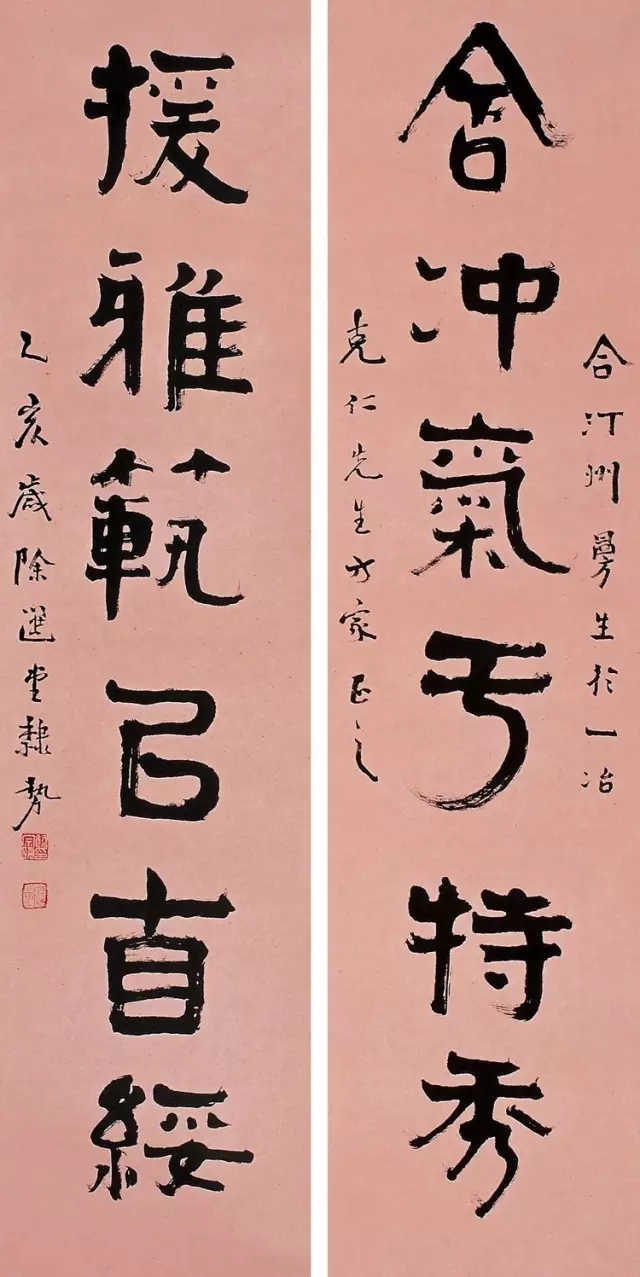 合汀州曼生於一冶
含冲氣于特秀
克仁先生方家正之
援雅範㠯直綏
乙亥歲除選堂隸勢